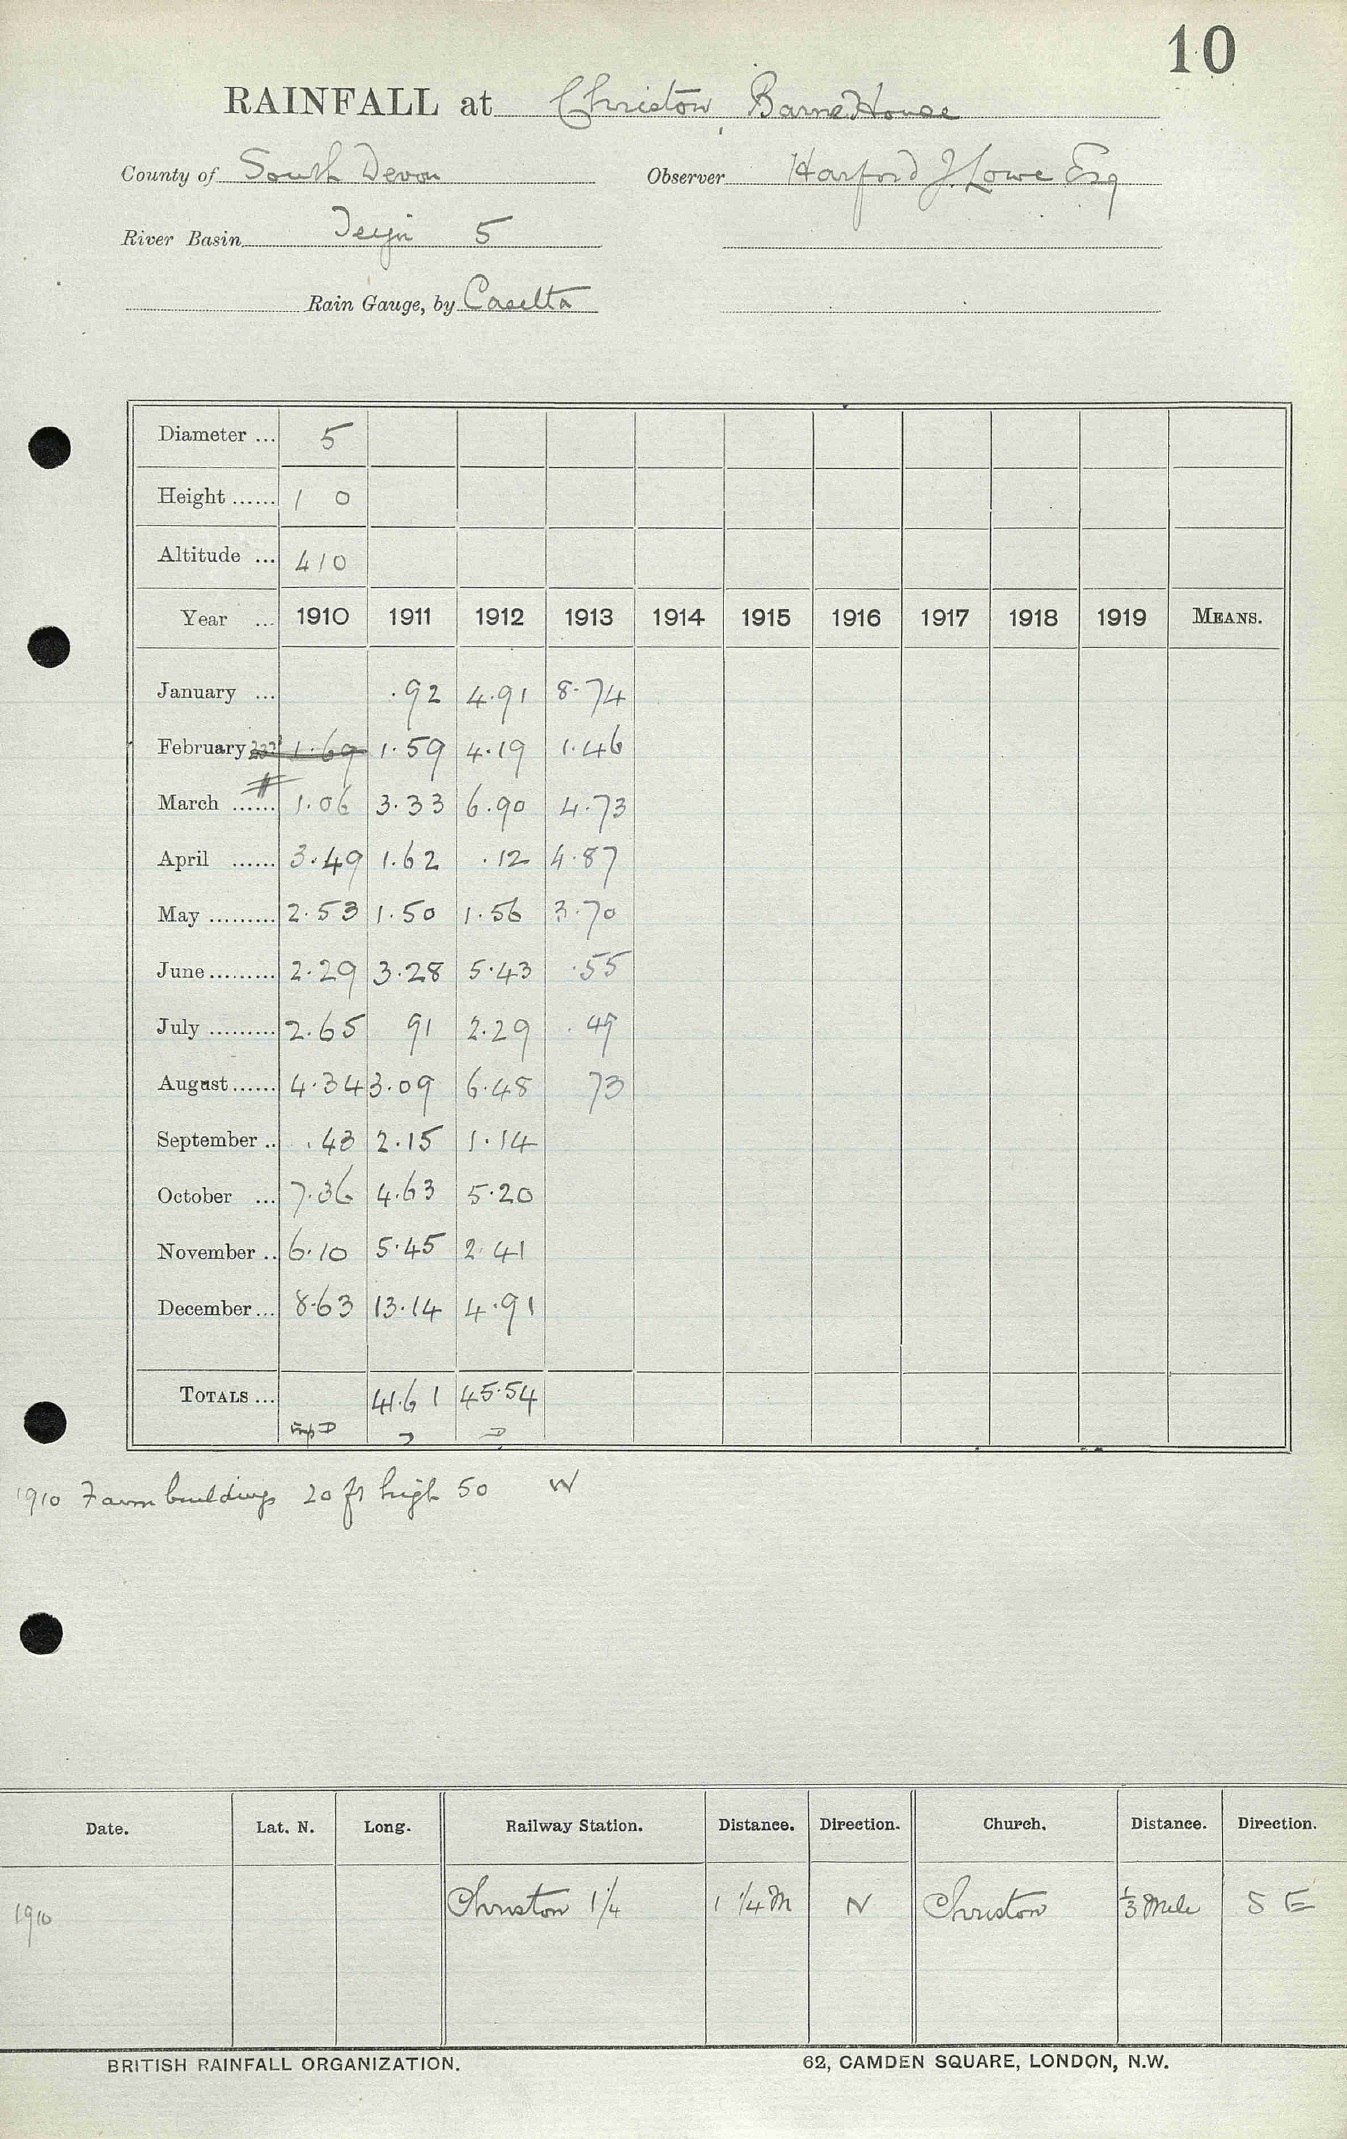 10
RAINFALL at Christow, Barne House
County of South Devon Observer Harford J. Lowe Esq
River Basin Teign 5
Rain Gauge, by Casella
Diameter ... 5
Height ...... 1 0
Altitude ... 410
Year ... 1910 1911 1912 1913 1914 1915 1916 1917 1918 1919 MEANS.
January ... .92 4.91 8.74
February 1.69 1.59 4.19 1.46
March ...... 1.06 3.33 6.90 4.73
April ...... 3.49 1.62 .12 4.87
May ......... 2.53 1.50 1.56 3.70
June ......... 2.29 3.28 5.43 .55
July ......... 2.65 91 2.29 .49
August ...... 4.34 3.09 6.48 73
September .. .43 2.15 1.14
October ... 7.36 4.63 5.20
November .. 6.10 5.45 2.41
December ... 8.63 13.14 4.91
TOTALS ... 41.61 45.54
1910 Farm buildings 20 ft high 50 W
Date. Lat. N. Long. Railway Station. Distance. Direction. Church. Distance. Direction.
1910 Christow 1 1/4 1 1/4 M N Christow 1/3 Mile S E
BRITISH RAINFALL ORGANIZATION. 62, CAMDEN SQUARE, LONDON, N.W.